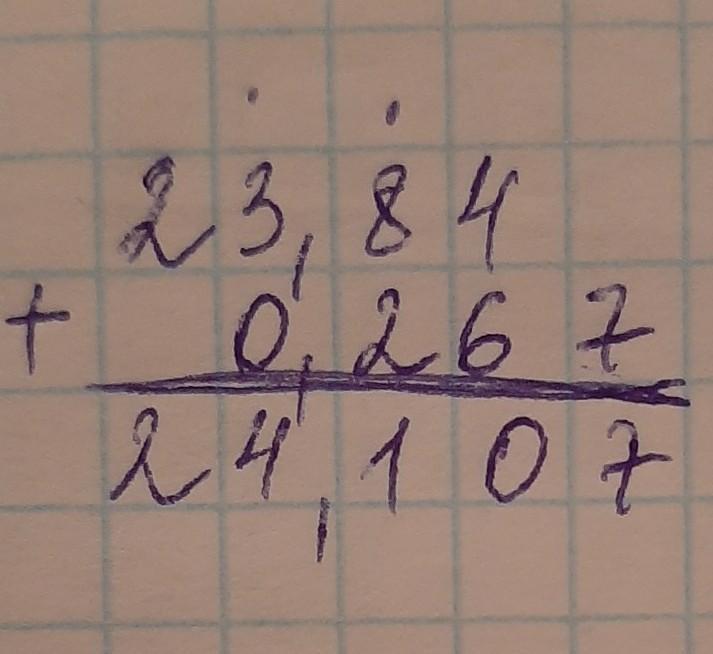 23,84
+ 0,267
24,107